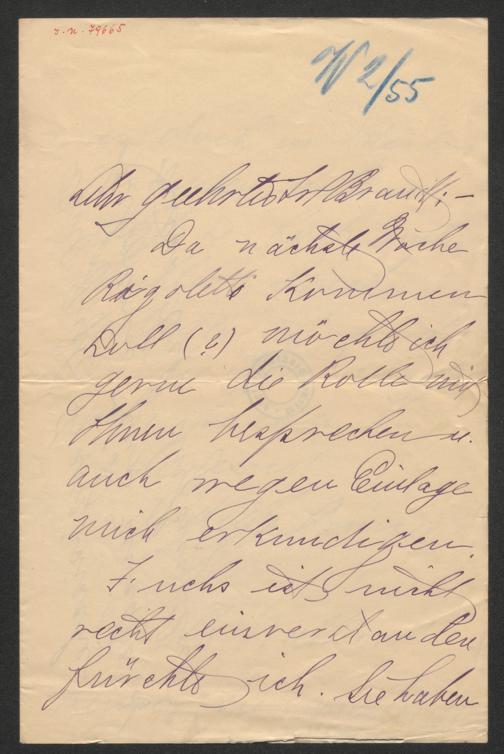 J.N. 79665
W 2/55
Sehr geehrter Hr Brandt! –
Da nächste Woche
Rigoletto kommen
soll (?) möchte ich
gerne die Rolle mit
Ihnen besprechen u.
auch wegen Einlage
mich erkundigen.
Fuchs ist nicht
recht einverstanden
fürchte ich. Sie haben